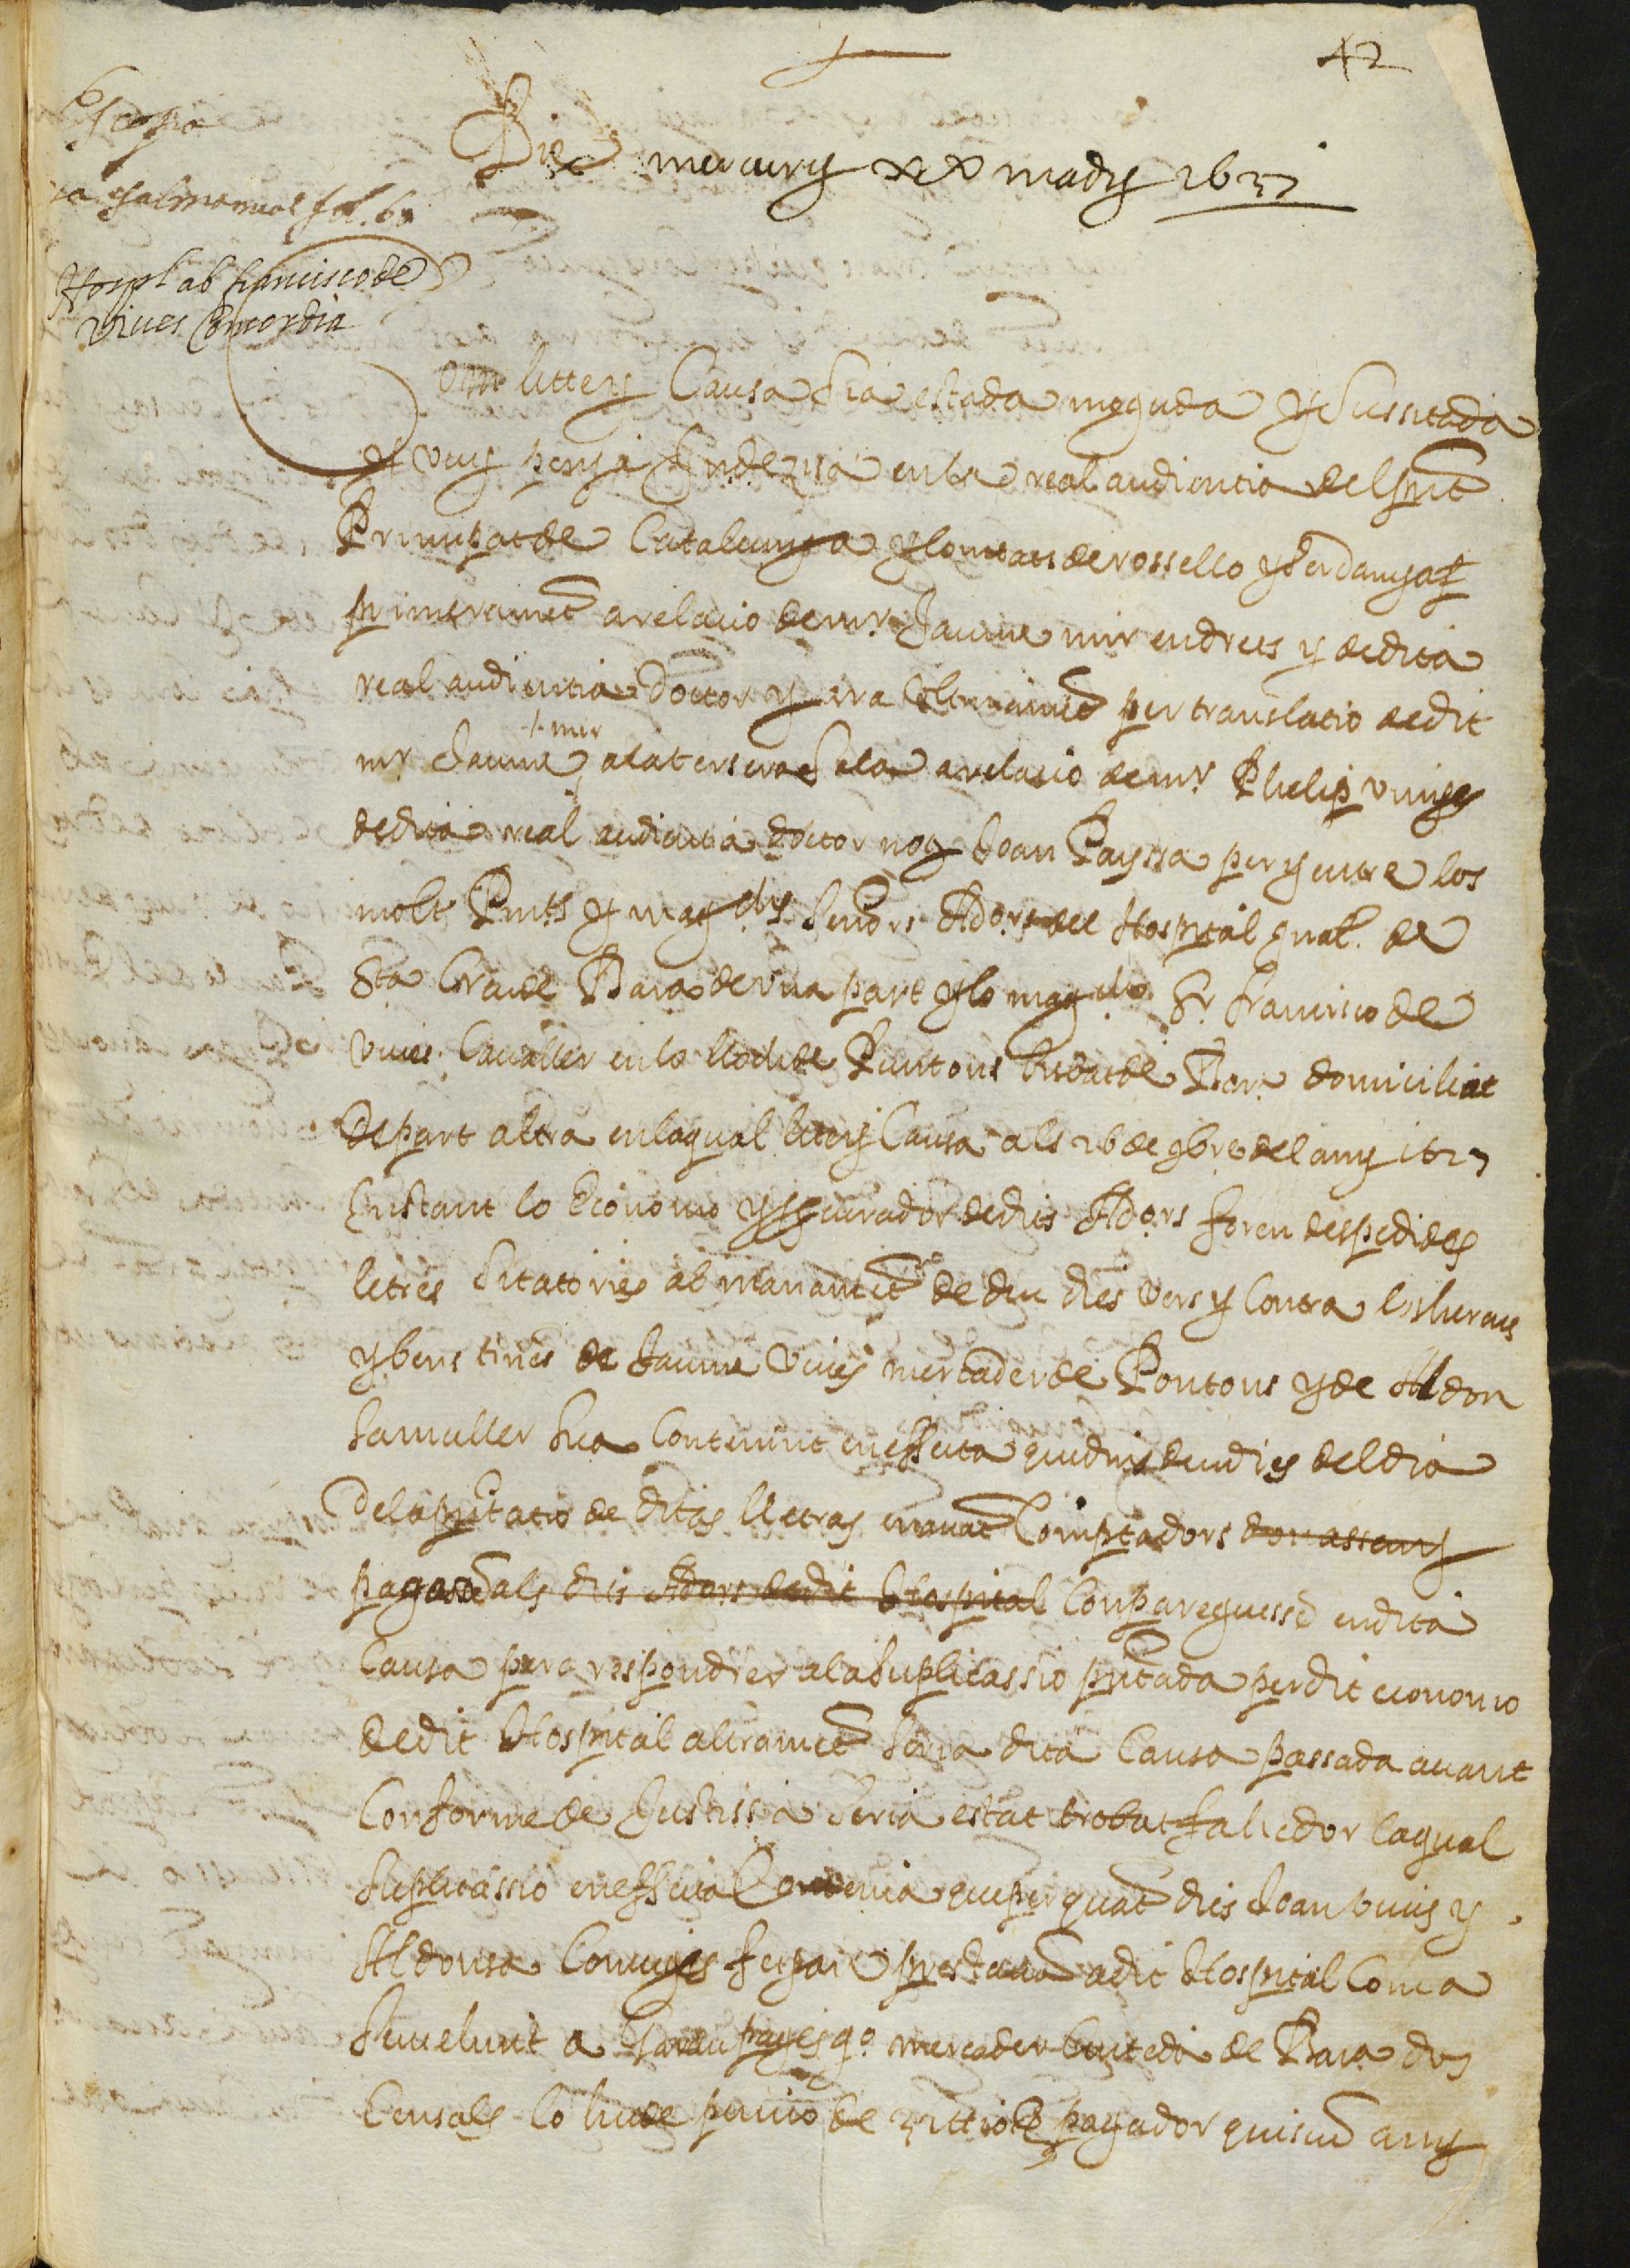 42
Die mercurij xx madij 1637
la salmanual fol. 60
Hospl ab francisco de
Viues Concordia
Com littery Causa sia estada moguda y sussitada
y vuy penja indezisa en la real audientia del pnt
Principat de Catalunya y Comtats de rossello y Cerdanya &
primeramet a relacio de mr. Jaume mir en drets y de dita
real audientia Doctor y ara vltimamet per translatio de dit
mr. Jaume mir a la tersera Sala a relasio de mr. Phelip vinyes
de dita real audientia doctor noy Joan Payssa per y entre los
molt Rnts y magchs Senors Adors del Hospital gnal. de
Sta Creu de Bara de vna part y lo magch Sr. francisco de
viues Cavaller en lo lloch de Puntons bisbat de Bara domiciliat
de part altra en la qual littery Causa als 26 de 9bre del any 1627
Instant lo Economo y procurador de dits Adors foren despedides
letres Sitatories ab manamet de deu dies vers y Contra los hereus
y bens tinets de Jaume Viues mercader de Pontons y de Aldon
sa muller sua Contenint en effecte que dins deu dies del dia
de la pntatio de ditas lletras en auat Comptadors donassen y
pagassen als dits Adors de dit Hospital Conpareguessen en dita
Causa pera respondrer a la Suplicassio pntada per dit economo
de dit Hospital altramet seria dita Causa passada auant
Conforme de Justissia seria estat trobat fahedor la qual
Suplicassio en effecte Contenia que per quat dits Joan viues y
Aldonsa Conjuges feyan y prestauan a dit Hospital Com a
Succehint a Grau pages qo. mercader Ciutedá de Bara dos
Censals lo hu de penció de pagador quiscun any